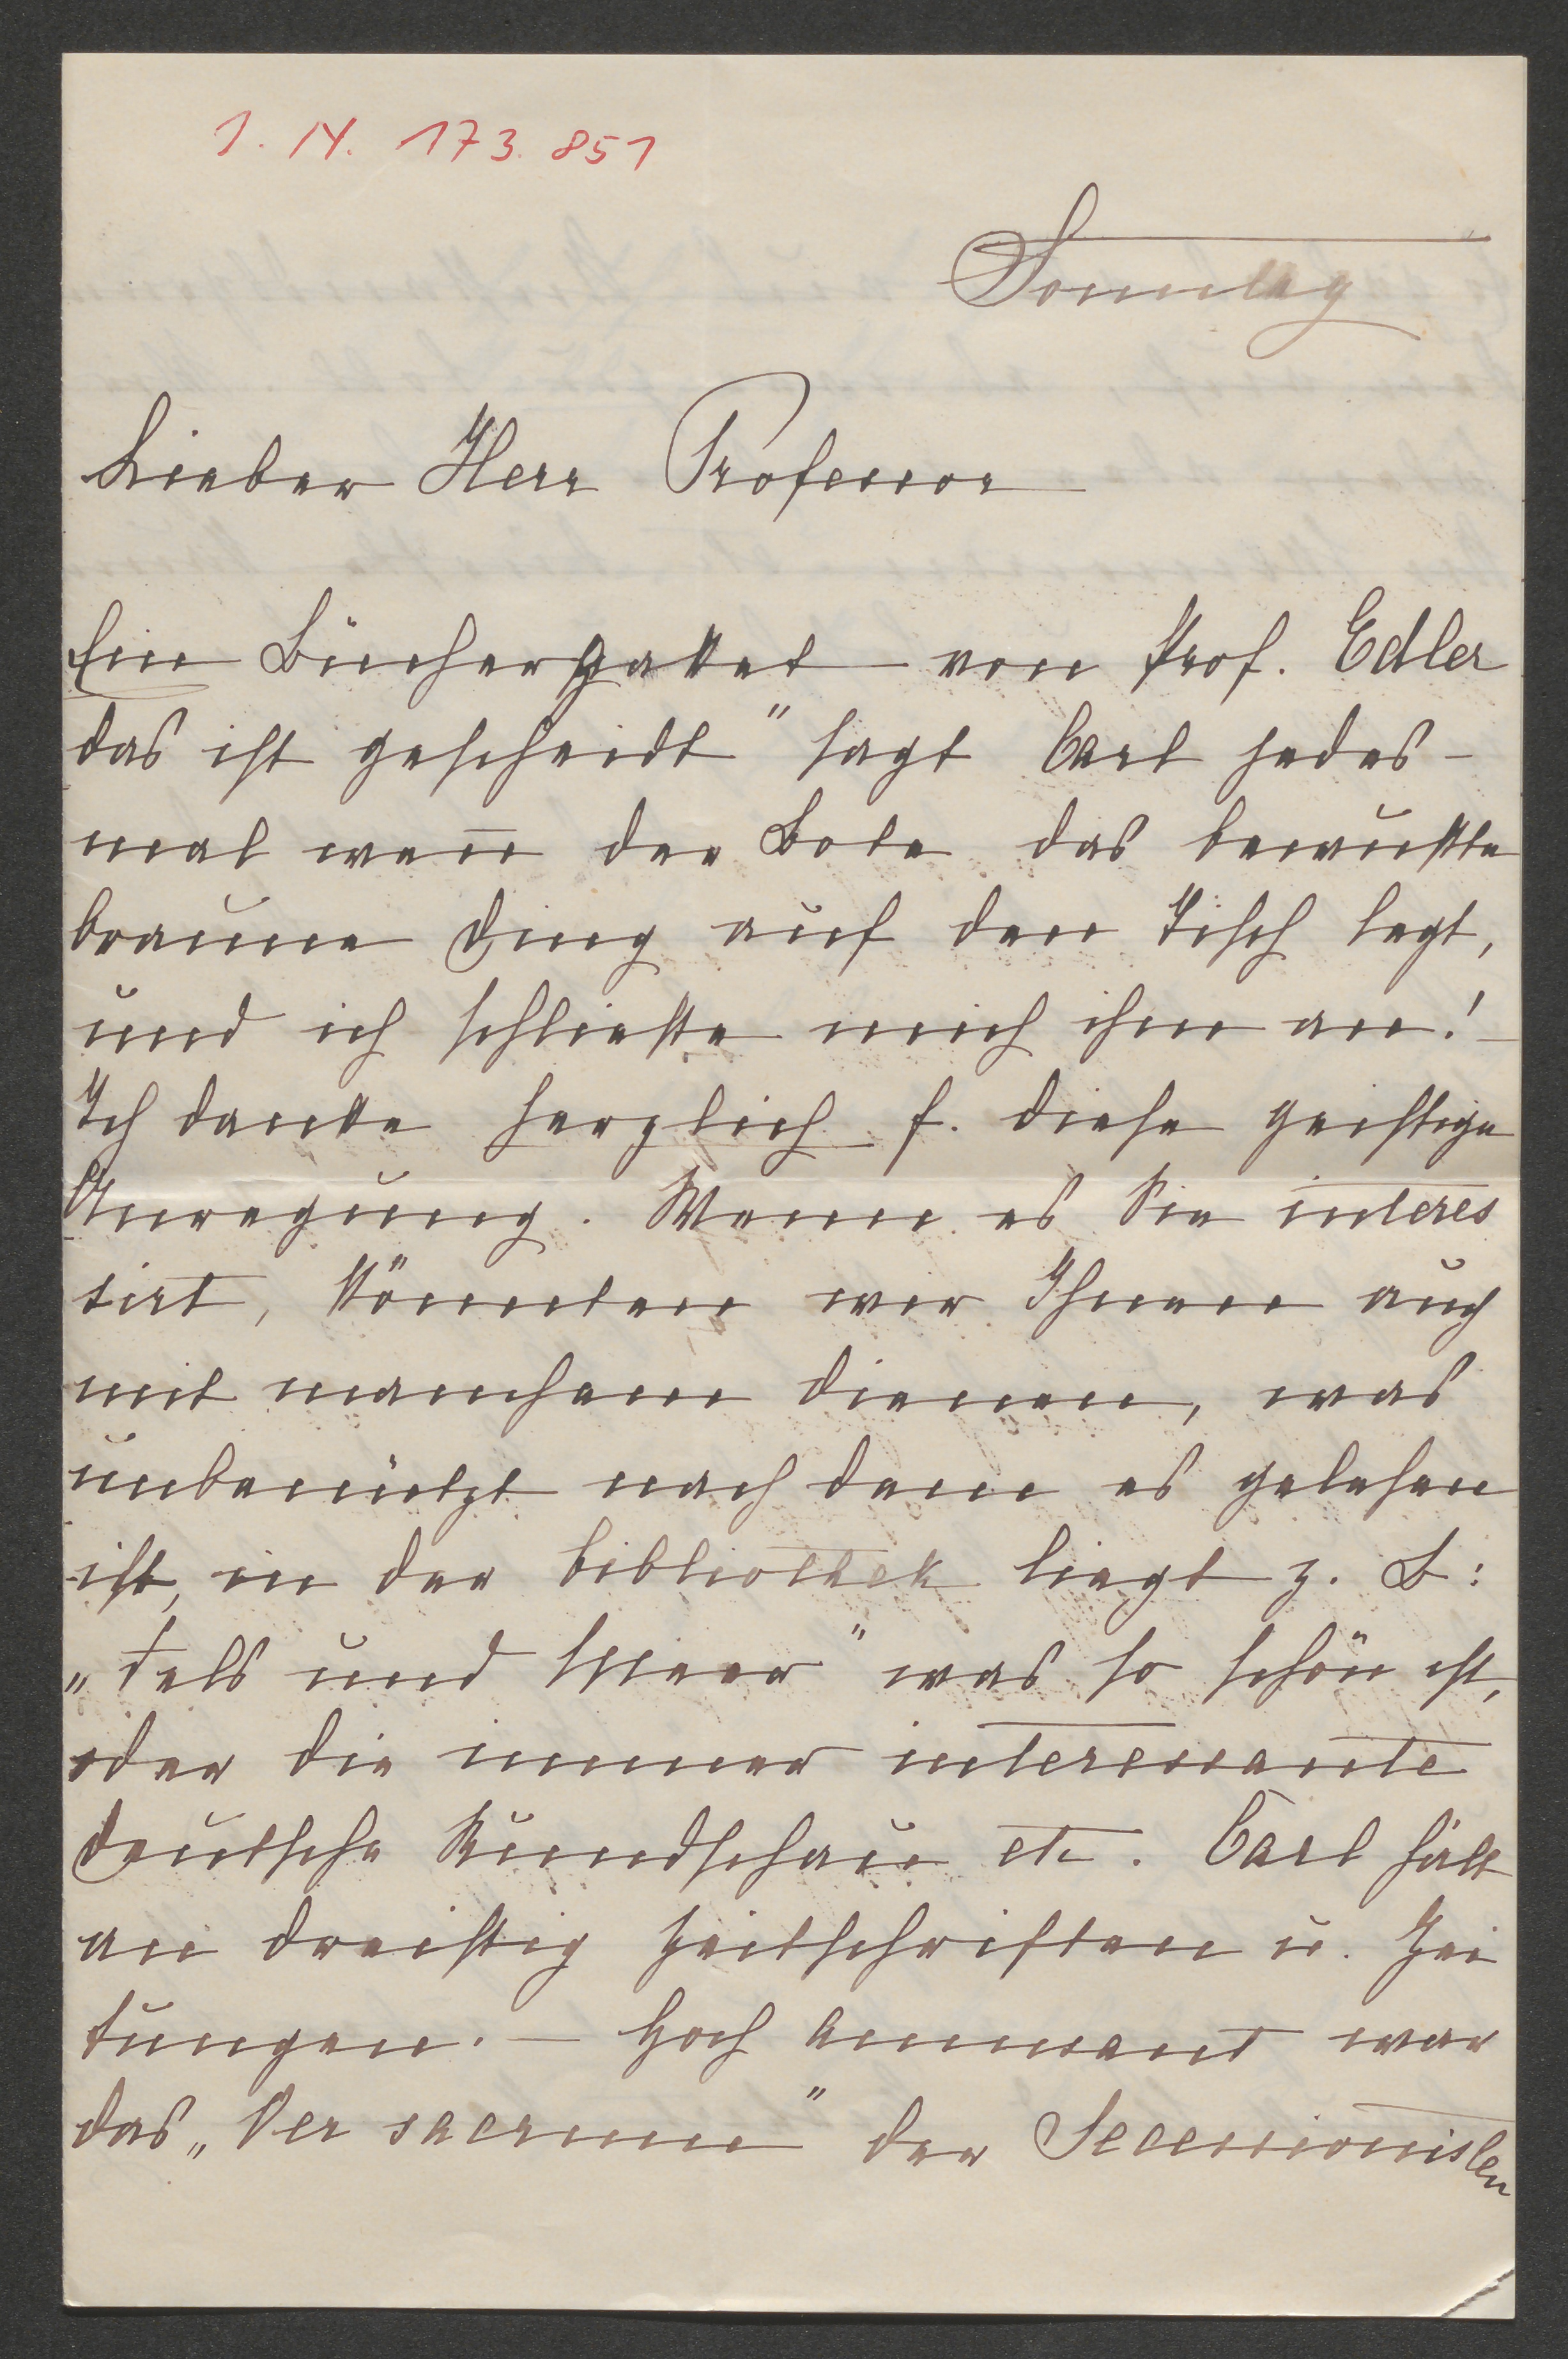 I. N. 173.851
Sonntag
Lieber Herr Professor
Ein Bücherpakket von Prof. Edler
das ist gescheidt" sagt Carl jedes-
mal wen̄ der Bote das bewußte
braune Ding auf den Tisch legt,
und ich schließe mich ihm an! –
Ich danke herzlich f. diese geistige
Anregung. Wenn es Sie interes
sirt, könnten wir Ihnen auch
mit manchem dienen, was
unbenützt nach dem es gelesen
ist, in der Bibliothek liegt z. B:
„Fels und Meer" was so schön ist,
oder die immer interessante
Deutsche Rundschau etc. Carl hält
an dreißig Zeitschriften u. Zei
tungen. – Hoch amusant war
das „Ver sacrum" der Secessionisten